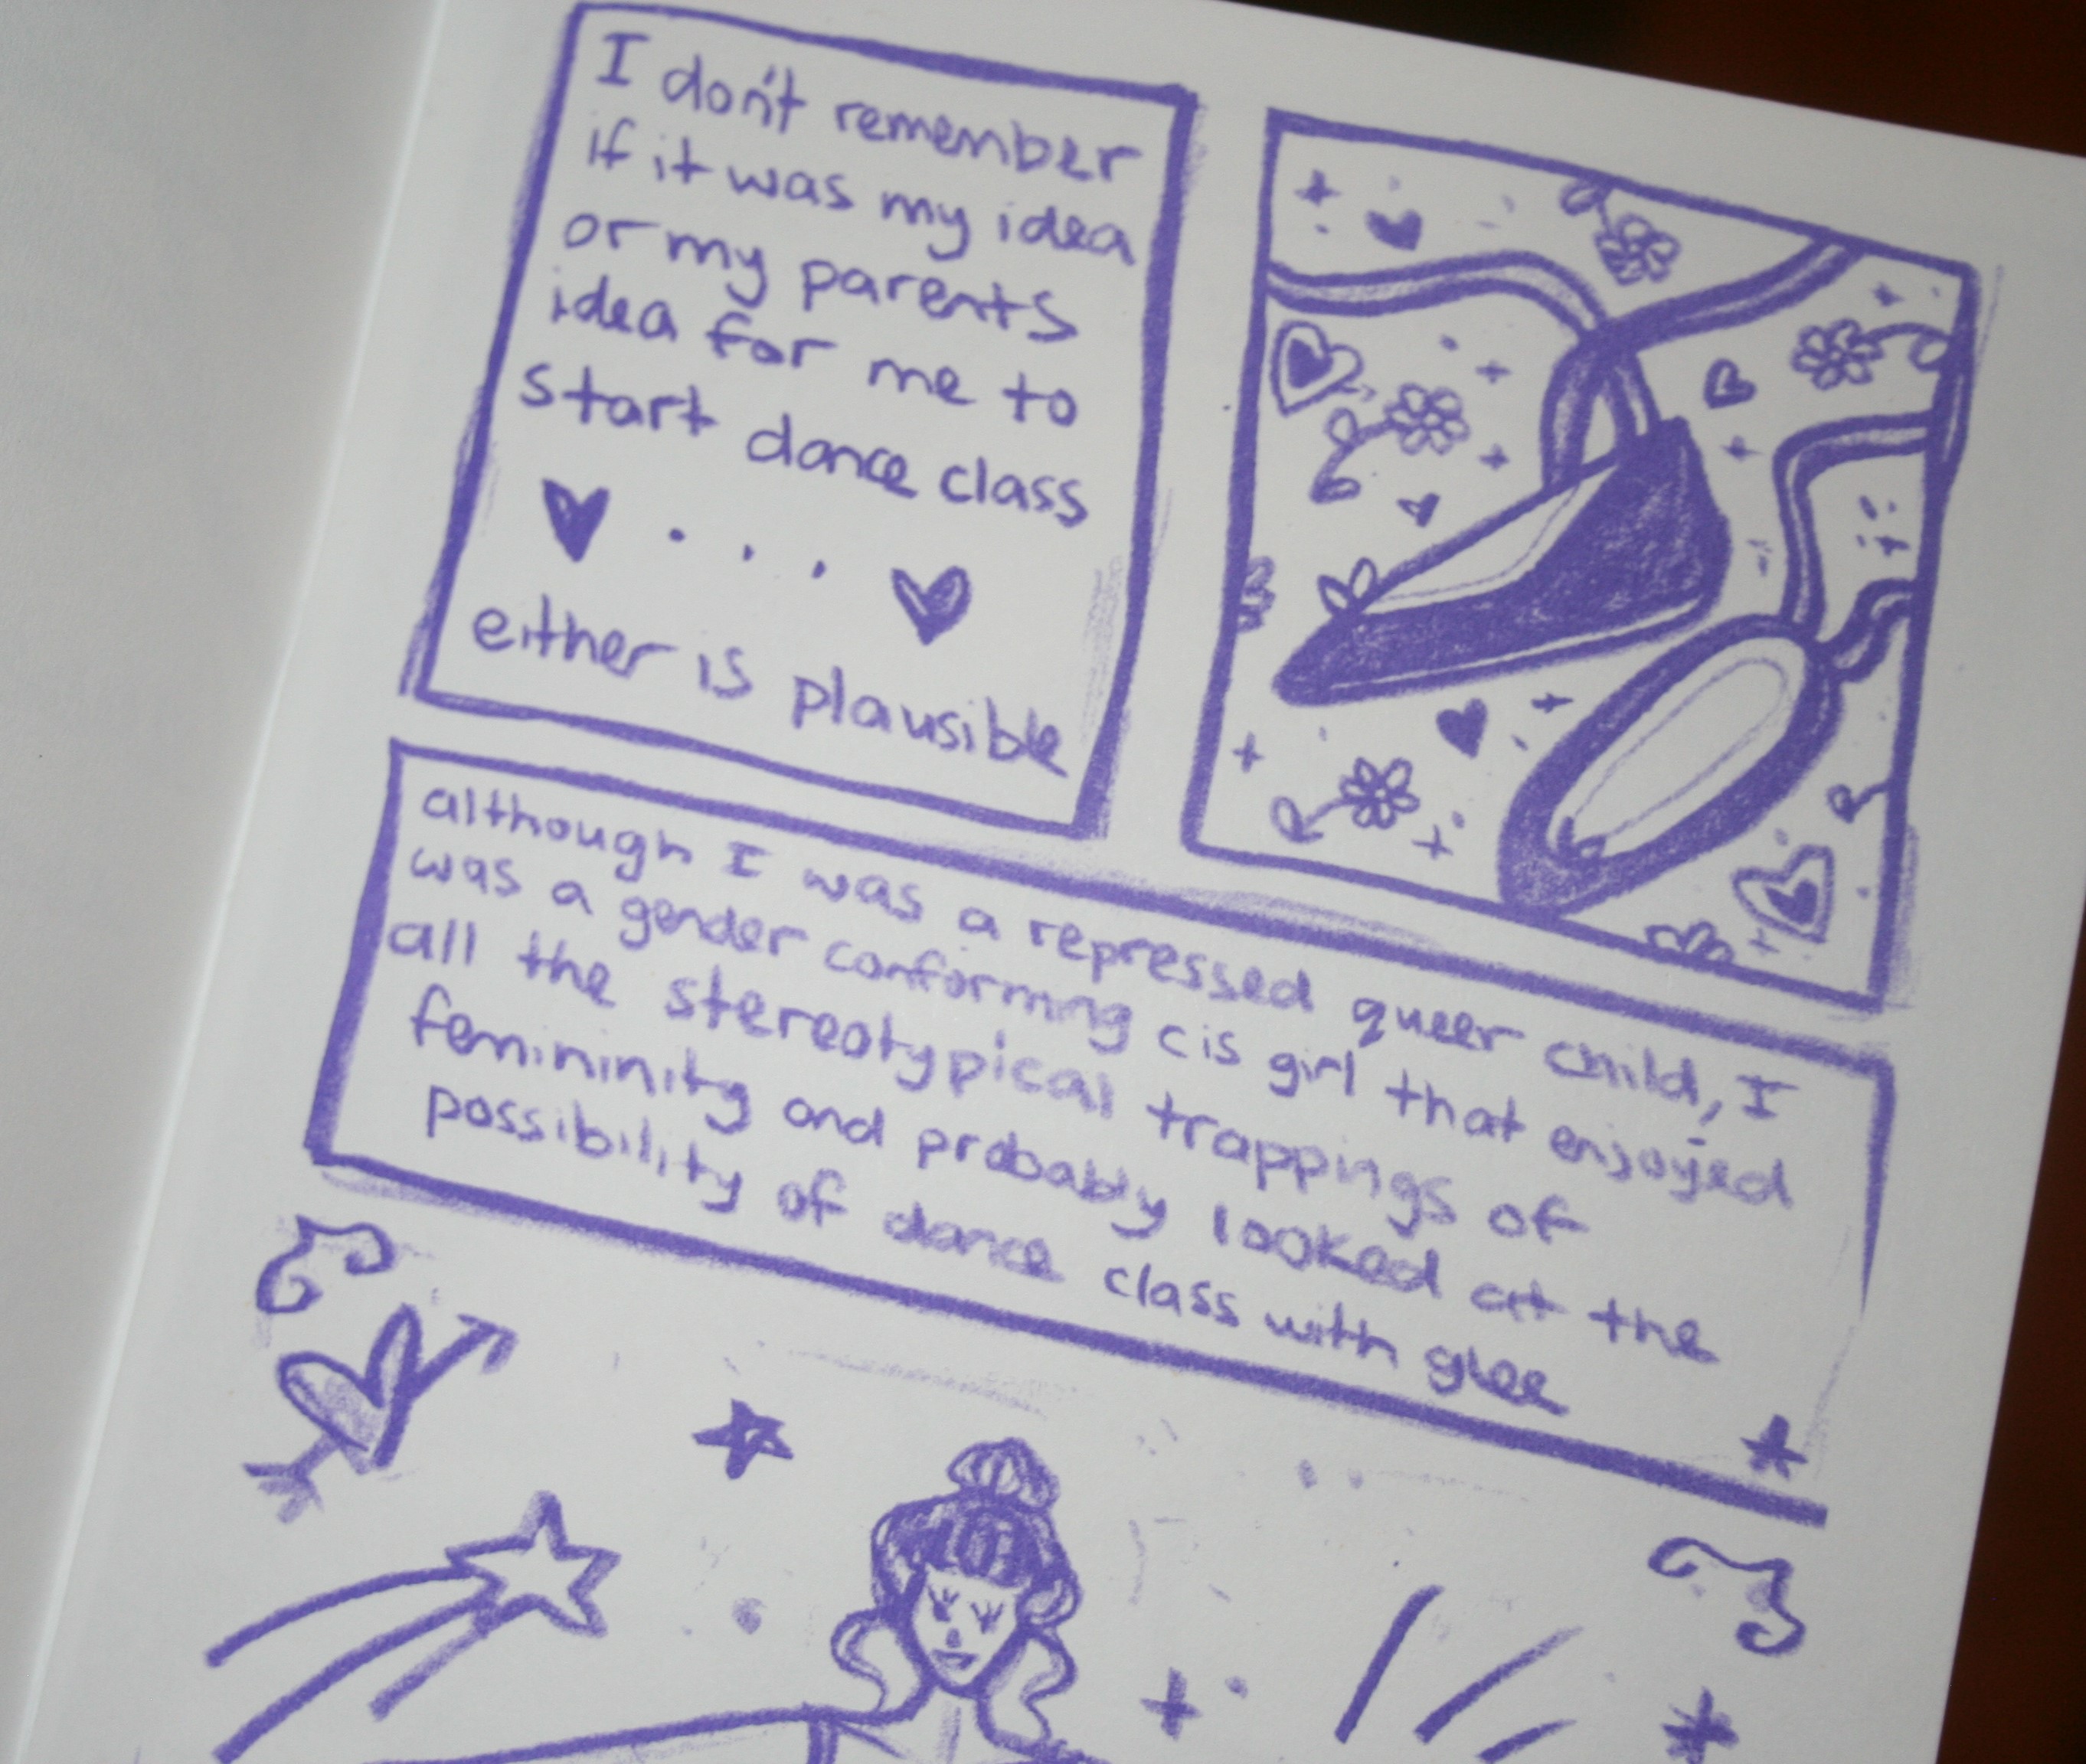 I don't remember
if it was my idea
or my parents
idea for me to
start dance class
. . .
either is plausible
although I was a repressed queer child, I
was a gender conforming cis girl that enjoyed
all the stereotypical trappings of
femininity and probably looked at the
possibility of dance class with glee